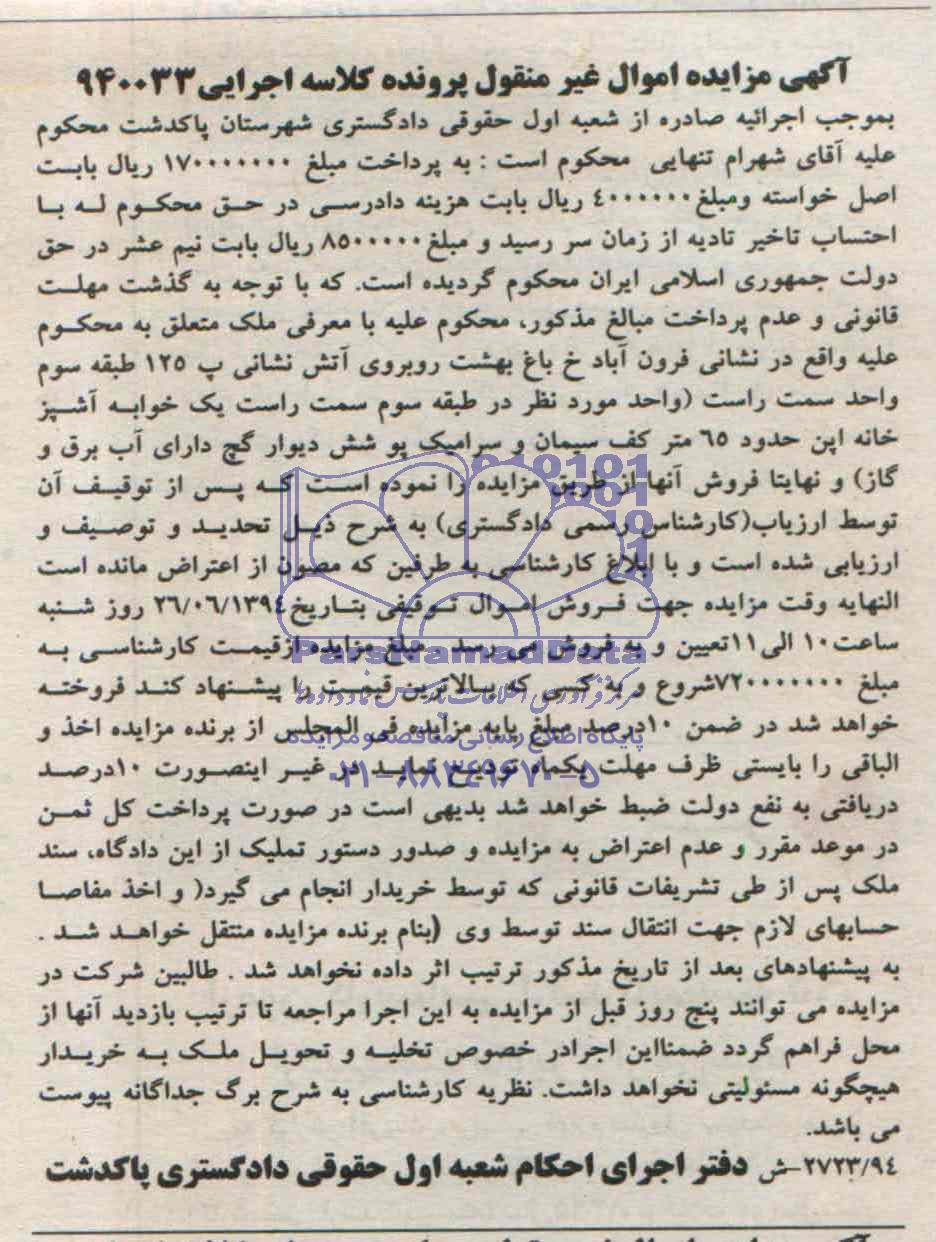 آگهی مزایده اموال غیر منقول پرونده کلاسه اجرایی ۹۴۰۰۳۳
بموجب اجرائیه صادره از شعبه اول حقوقی دادگستری شهرستان پاکدشت محکوم
علیه آقای شهرام تنهایی محکوم است : به پرداخت مبلغ ۱۷۰۰۰۰۰۰۰ ریال بابت
اصل خواسته ومبلغ ۴۰۰۰۰۰۰ ریال بابت هزینه دادرسی در حق محکوم له با
احتساب تاخیر تادیه از زمان سر رسید و مبلغ ۸۵۰۰۰۰۰ ریال بابت نیم عشر در حق
دولت جمهوری اسلامی ایران محکوم گردیده است. که با توجه به گذشت مهلت
قانونی و عدم پرداخت مبالغ مذکور، محکوم علیه با معرفی ملک متعلق به محکوم
علیه واقع در نشانی فرون آباد خ باغ بهشت روبروی آتش نشانی پ ۱۲۵ طبقه سوم
واحد سمت راست (واحد مورد نظر در طبقه سوم سمت راست یک خوابه آشپز
خانه اپن حدود ۶۵ متر کف سیمان و سرامیک پو شش دیوار گچ دارای آب برق و
گاز) و نهایتا فروش آنها از طریق مزایده را نموده است که پس از توقیف آن
توسط ارزیاب(کارشناس رسمی دادگستری) به شرح ذیل تحدید و توصیف و
ارزیابی شده است و با ابلاغ کارشناسی به طرفین که مصون از اعتراض مانده است
النهایه وقت مزایده جهت فروش اموال توقیفی بتاریخ ۲۶/۰۶/۱۳۹٤ روز شنبه
ساعت ۱۰ الی ۱۱تعیین و به فروش می رسد . مبلغ مزایده ازقیمت کارشناسی به
ParsNamadData
مبلغ ۷۲۰۰۰۰۰۰۰شروع و به کسی که بالاترین قیمت را پیشنهاد کند فروخته
مرکز فرآوری اطلاعات پارس نماد داده ها
خواهد شد در ضمن ۱۰درصد مبلغ پایه مزایده فی المجلس از برنده مزایده اخذ و
پایگاه اطلاع رسانی مناقصه و مزایده
الباقی را بایستی ظرف مهلت یکماه تودیع نماید در غیر اینصورت ۱۰درصد
۰۲۱-۸۸۳۴۹۶۷۰-۵
دریافتی به نفع دولت ضبط خواهد شد بدیهی است در صورت پرداخت کل ثمن
در موعد مقرر و عدم اعتراض به مزایده و صدور دستور تملیک از این دادگاه، سند
ملک پس از طی تشریفات قانونی که توسط خریدار انجام می گیرد( و اخذ مفاصا
حسابهای لازم جهت انتقال سند توسط وی (بنام برنده مزایده منتقل خواهد شد .
به پیشنهادهای بعد از تاریخ مذکور ترتیب اثر داده نخواهد شد . طالبین شرکت در
مزایده می توانند پنج روز قبل از مزایده به این اجرا مراجعه تا ترتیب بازدید آنها از
محل فراهم گردد ضمنااین اجرادر خصوص تخلیه و تحویل ملک به خریدار
هیچگونه مسئولیتی نخواهد داشت. نظریه کارشناسی به شرح برگ جداگانه پیوست
می باشد.
۲۷۲۳/۹٤-ش دفتر اجرای احکام شعبه اول حقوقی دادگستری پاکدشت